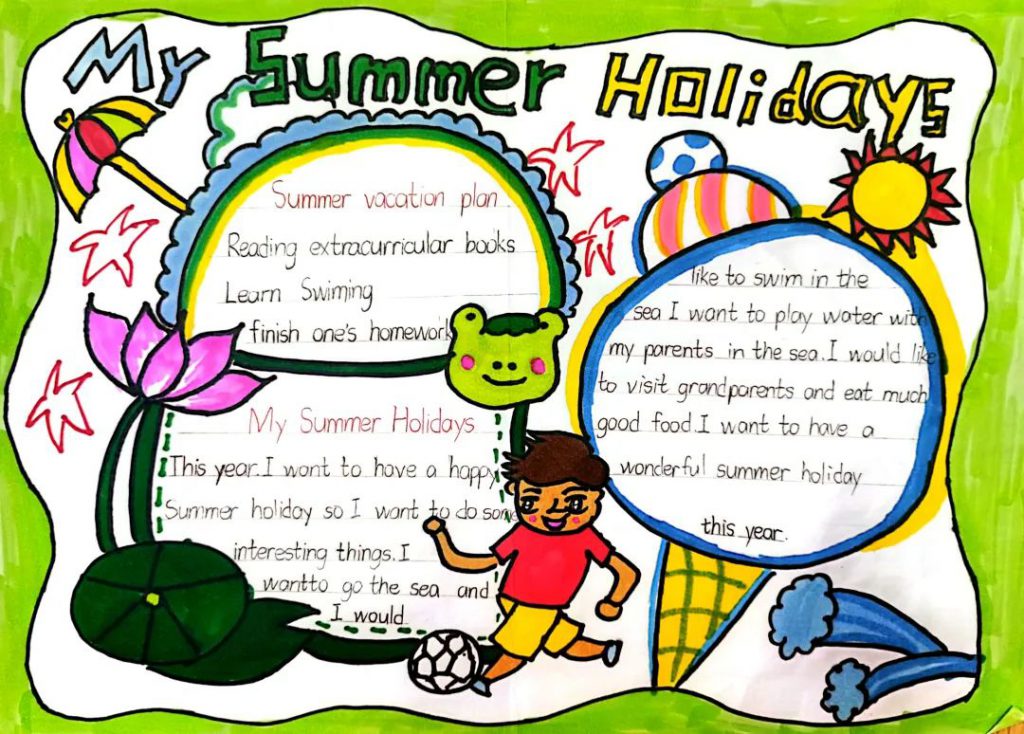 My Summer Holidays
Summer vacation plan.
Reading extracurricular books
Learn Swiming
finish one's homework
My Summer Holidays
This year.I want to have a happy
Summer holiday so I want to do some
interesting things.I
wantto go the sea and
I would
like to swim in the
sea I want to play water with
my parents in the sea.I would like
to visit grandparents and eat much
good food.I want to have a
wonderful summer holiday
this year.